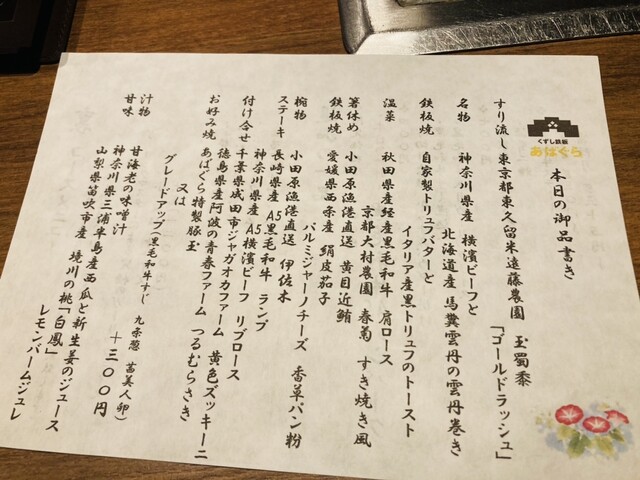 くずし鉄板
あばぐら
本日の御品書き
すり流し 東京都東久留米遠藤農園 玉蜀黍
「ゴールドラッシュ」
名物 神奈川県産 横濱ビーフと
北海道産 馬糞雲丹の雲丹巻き
鉄板焼 自家製トリュフバターと
イタリア産黒トリュフのトースト
温菜 秋田県産経産黒毛和牛 肩ロース
京都大村農園 春菊 すき焼き風
箸休め 小田原漁港直送 黄目近鮪
鉄板焼 愛媛県西条産 絹皮茄子
パルミジャーノチーズ 香草パン粉
椀物 小田原漁港直送 伊佐木
ステーキ 長崎県産 A5黒毛和牛 ランプ
神奈川県産 A5横濱ビーフ リブロース
付け合せ 千葉県成田市ジャガオカファーム 黄色ズッキーニ
徳島県産阿波の青春ファーム つるむらさき
お好み焼 あばぐら特製豚玉
又は
グレードアップ(黒毛和牛すじ 九条葱 苗美人卵)
+三〇〇円
汁物 甘海老の味噌汁
甘味 神奈川県三浦半島産西瓜と新生姜のジュース
山梨県笛吹市産 境川の桃「白鳳」
レモンバームジュレ